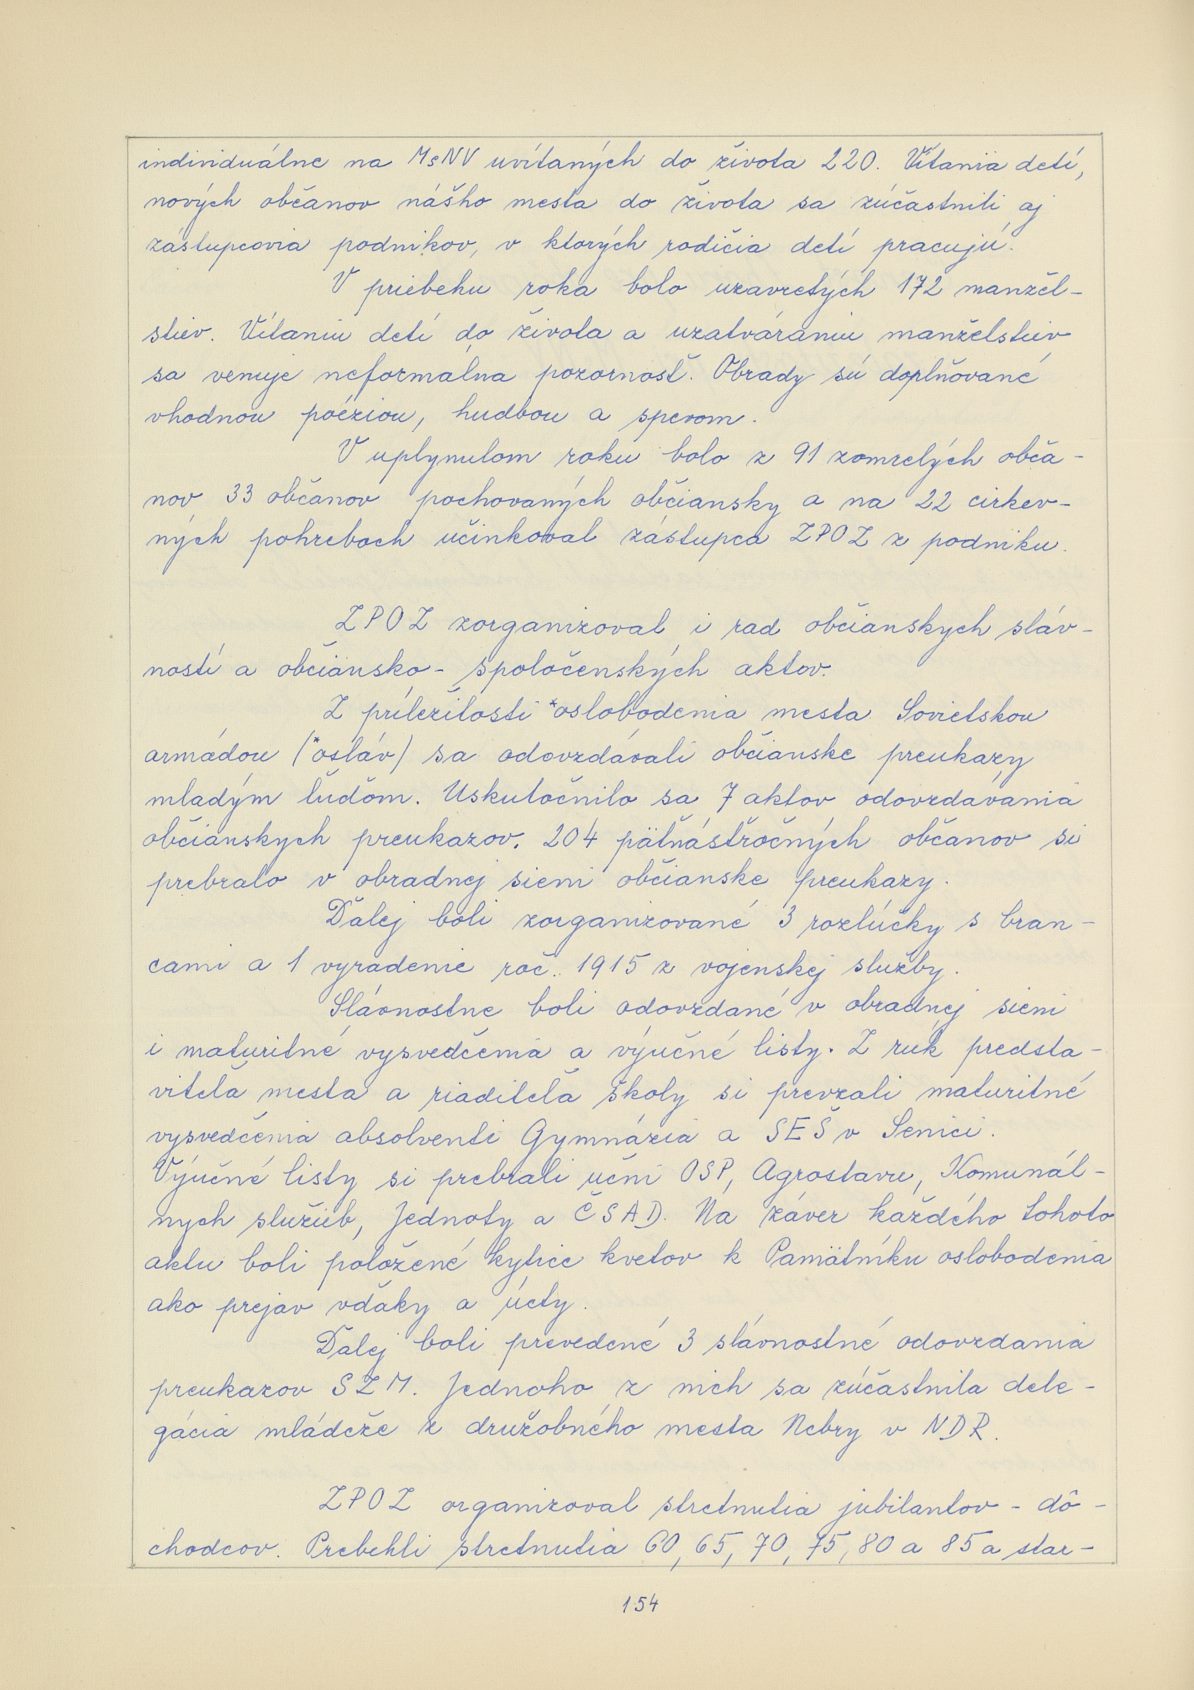 individuálne na MsNV uvítaných do života 220. Vítania detí,
nových občanov nášho mesta do života sa zúčastnili aj
zástupcovia podnikov, v ktorých rodičia detí pracujú.
V priebehu roka bolo uzavretých 172 manžel-
stiev. Vítaniu detí do života a uzatváraniu manželstiev
sa venuje neformálna pozornosť. Obrady sú doplňované
vhodnou poéziou, hudbou a spevom.
V uplynulom roku bolo z 91 zomrelých obča-
nov 33 občanov pochovaných občiansky a na 22 cirkev-
ných pohreboch účinkoval zástupca ZPOZ z podniku.
ZPOZ zorganizoval i rad občianskych sláv-
ností a občiansko-spoločenských aktov.
Z príležitosti *oslobodenia mesta Sovietskou
armádou (*osláv) sa odovzdávali občianske preukazy
mladým ľuďom. Uskutočnilo sa 7 aktov odovzdávania
občianskych preukazov. 204 pätnásťročných občanov si
prebralo v obradnej sieni občianske preukazy.
Ďalej boli zorganizované 3 rozlúčky s bran-
cami a 1 vyradenie roč. 1915 z vojenskej služby.
Slávnostne boli odovzdané v obradnej sieni
i maturitné vysvedčenia a výučné listy. Z rúk predsta-
viteľa mesta a riaditeľa školy si prevzali maturitné
vysvedčenia absolventi Gymnázia a SEŠ v Senici.
Výučné listy si prebrali učni OSP, Agrostavu, Komunál-
nych služieb, Jednoty a ČSAD. Na záver každého tohoto
aktu boli položené kytice kvetov k Pamätníku oslobodenia
ako prejav vďaky a úcty.
Ďalej boli prevedené 3 slávnostné odovzdania
preukazov SZM. Jednoho z nich sa zúčastnila dele-
gácia mládeže z družobného mesta Nebry v NDR.
ZPOZ organizoval stretnutia jubilantov - dô-
chodcov. Prebehli stretnutia 60, 65, 70, 75, 80 a 85 a star-
154